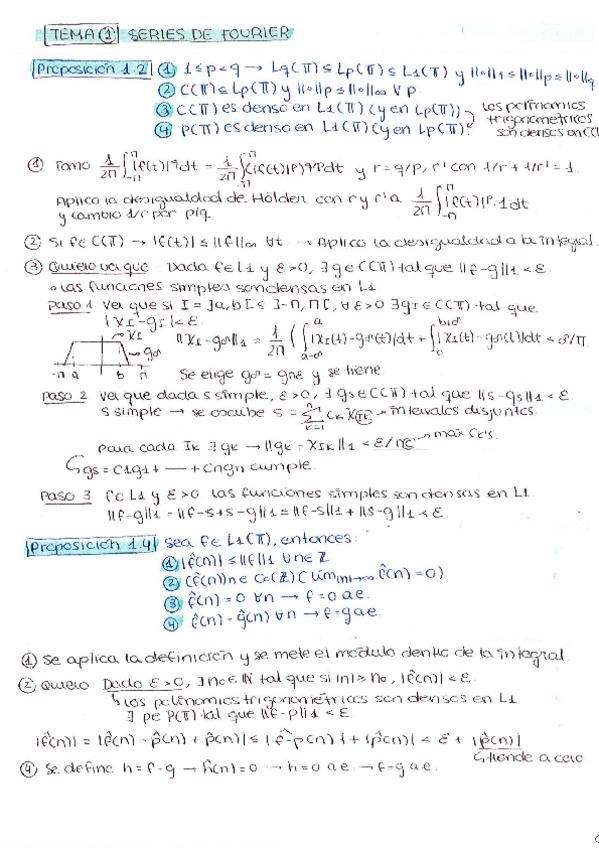 TEMA ① SERIES DE FOURIER
Proposición 1.2 ① 1≤p<q → Lq(Π) ⊆ Lp(Π) ⊆ L1(Π) y ||•||1 ≤ ||•||p ≤ ||•||q
② C(Π) ⊆ Lp(Π) y ||•||p ≤ ||•||∞ ∀ p.
③ C(Π) es denso en L1(Π) (y en Lp(Π))
④ P(Π) es denso en L1(Π) (y en Lp(Π).
Los polinomios
trigonométricos
son densos en C(Π
① Tomo 1/2π ∫_{-π}^{π} |f(t)|^q dt = 1/2π ∫_{-π}^{π} (|f(t)|^p)^{q/p} dt y r = q/p, r' con 1/r + 1/r' = 1.
Aplico la desigualdad de Hölder con r y r' a 1/2π ∫_{-π}^{π} |f(t)|^p · 1 dt
y cambio 1/r por p/q.
② Si f∈C(Π) → |f(t)| ≤ ||f||∞ ∀t → Aplico la desigualdad a la integral.
③ Quiero ver que Dada f∈L1 y ε>0, ∃ g∈C(Π) tal que ||f-g||1 < ε.
• las funciones simples son densas en L1
Paso 1 Ver que si I = ]a,b[ ⊆ ]-π,π[, ∀ε>0 ∃ gI ∈ C(Π) tal que
|χI - gI| < ε.
χI
gσ
-π a b π
||χI - gσ||1 = 1/2π ( ∫_{a-σ}^{a} |χI(t) - gσ(t)|dt + ∫_{b}^{b+σ} |χI(t) - gσ(t)|dt ≤ σ/π
Se elige gσ = gπε y se tiene
Paso 2 Ver que dada s simple, ε>0, ∃ gs∈C(Π) tal que ||s-gs||1 < ε.
s simple → se escribe s = Σ_{k=1}^{n} Ck χIk → intervalos disjuntos.
Para cada Ik ∃ gk → ||gk - χIk||1 < ε/nC → máx Ck's.
gs = C1g1 + — + Cngn cumple.
Paso 3 f∈L1 y ε>0 las funciones simples son densas en L1.
||f-g||1 = ||f-s+s-g||1 = ||f-s||1 + ||s-g||1 < ε.
Proposición 1.4 Sea f∈L1(Π), entonces:
① |f̂(n)| ≤ ||f||1 ∀n∈Z
② (f̂(n))n ∈ C0(Z) ( lím|n|→∞ f̂(n) = 0)
③ f̂(n) = 0 ∀n → f = 0 a.e.
④ f̂(n) - ĝ(n) ∀n → f = g a.e.
① Se aplica la definición y se mete el módulo dentro de la integral
② Quiero Dado ε>0, ∃ n0∈N tal que si |n| ≥ n0, |f̂(n)| < ε.
Los polinomios trigonométricos son densos en L1
∃ p∈P(Π) tal que ||f-p||1 < ε
|f̂(n)| = |f̂(n) - p̂(n) + p̂(n)| ≤ |f̂-p(n)| + |p̂(n)| < ε + |p̂(n)|
tiende a cero
④ Se define h = f-g → ĥ(n) = 0 → h = 0 a.e → f = g a.e.